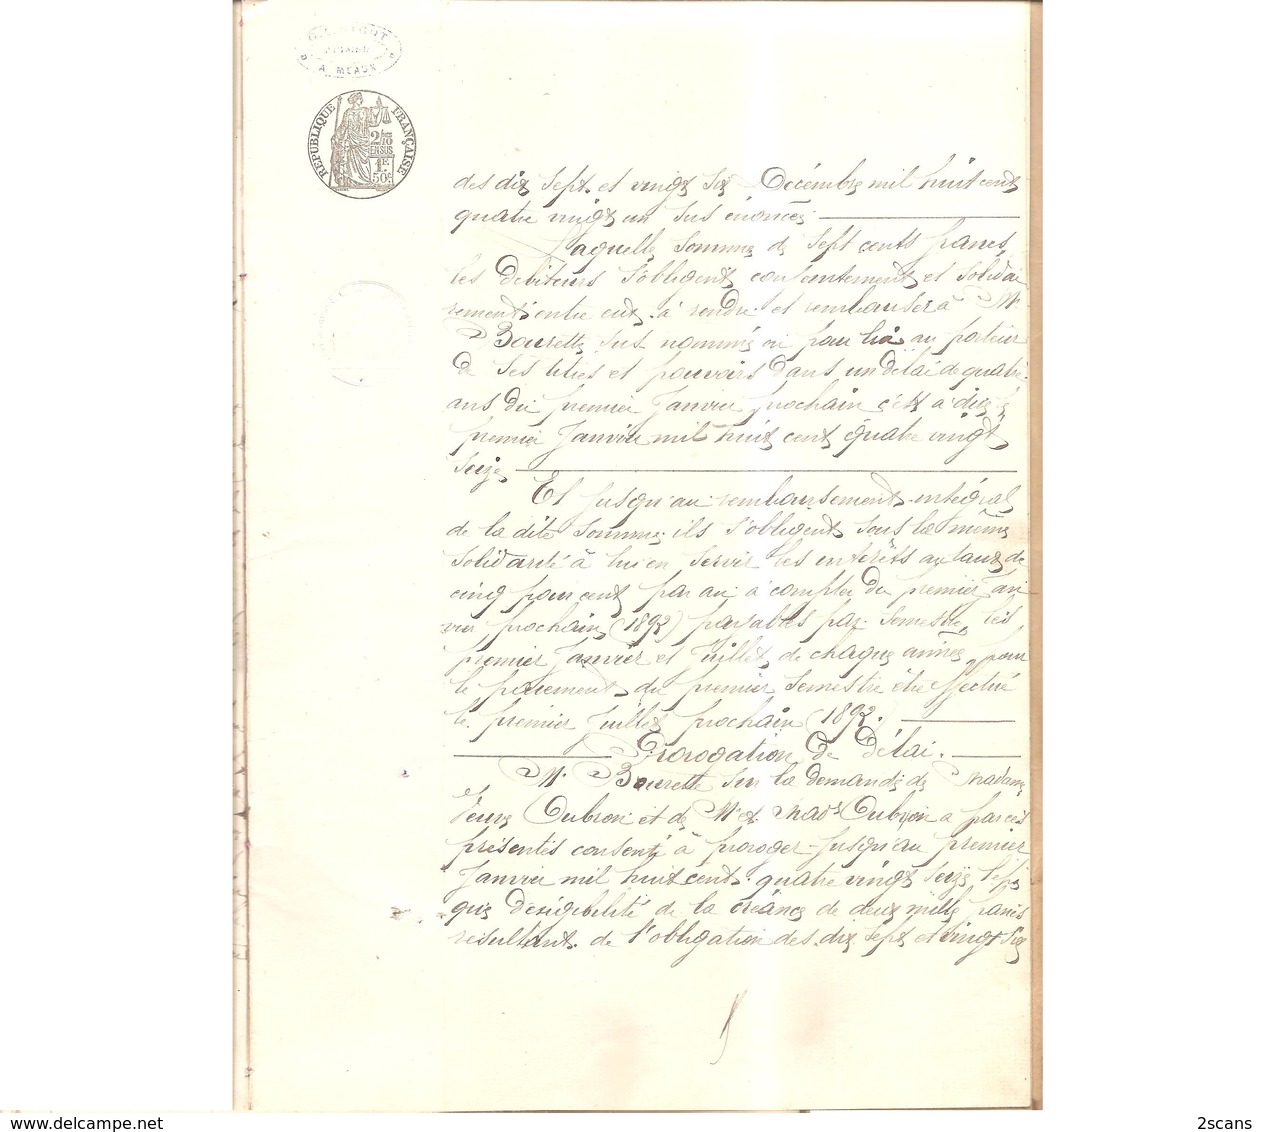 A MEAUX
RÉPUBLIQUE FRANÇAISE
2/10 EN SUS
1F 50c
des dix sept et vingt six Décembre mil huit cent
quatre vingt un sus énoncés.
Laquelle somme de sept cents francs,
les débiteurs s'obligent conjointement et solidai
rement entre eux à rendre et rembourser à M.
Bourette sus nommé ou pour lui au porteur
de ses titres et pouvoirs dans un délai de quatre
ans du premier Janvier prochain c'est à dire le
premier Janvier mil huit cent quatre vingt
seize
Et jusqu'au remboursement intégral
de la dite somme ils s'obligent sous la même
solidarité à lui en servir les intérêts au taux de
cinq pour cent par an à compter du premier Jan
vier prochain (1892) payables par semestre, les
premier Janvier et Juillet de chaque année, pour
le paiement du premier semestre être effectué
le premier Juillet prochain (1892.)
Prorogation de délai.
M. Bourette sur la demande de Madame
Veuve Dubron et de M. et Made Dubron a par ces
présentes consenti à proroger jusqu'au premier
Janvier mil huit cent quatre vingt seize l'épo
que d'exigibilité de la créance de deux mille francs
résultant de l'obligation des dix sept et vingt six
2scans